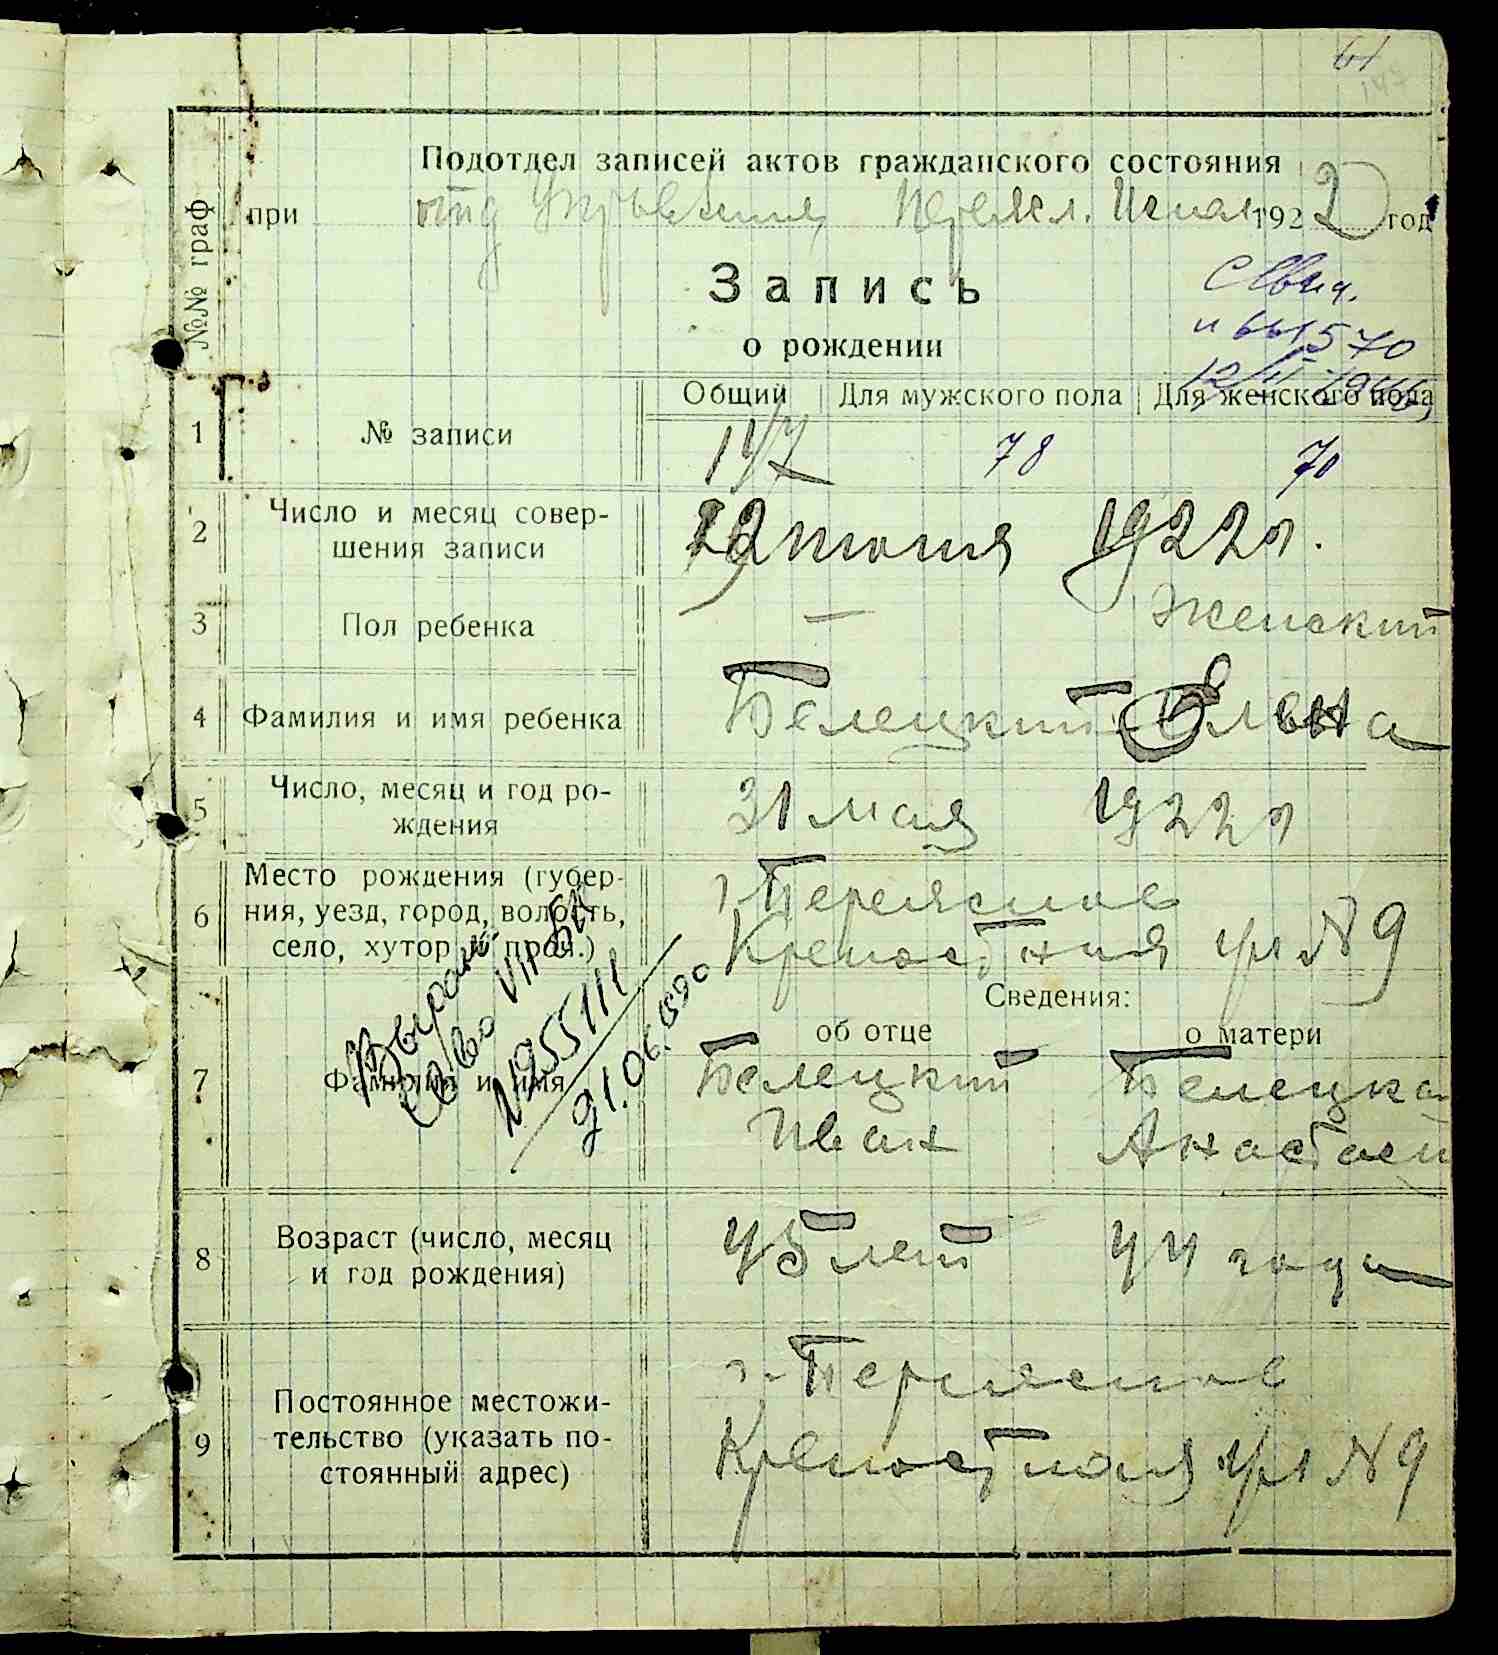 61
147
Подотдел записей актов гражданского состояния
при отд Управления Переясл. Испол 1922 год
№№ граф
Запись
о рождении
12/II 1946
Общий Для мужского пола Для женского пола
1 № записи 147 78 70
2 Число и месяц совер-
шения записи июня 1922 г.
3 Пол ребенка — Женский
4 Фамилия и имя ребенка Белецкий Елена
5 Число, месяц и год ро-
ждения 31 мая 1922 г
6 Место рождения (губер-
ния, уезд, город, волость,
село, хутор и проч.)
г. Переяслов
Крепостная ул N 9
Сведения:
об отце о матери
7 Фамилия и имя
Белецкий Белецкая
Иван Анастасия
VII-БК
N 955111
21.06.1990
8 Возраст (число, месяц
и год рождения) 45 лет 44 года
9 Постоянное местожи-
тельство (указать по-
стоянный адрес)
г. Переяслов
Крепостная ул N 9